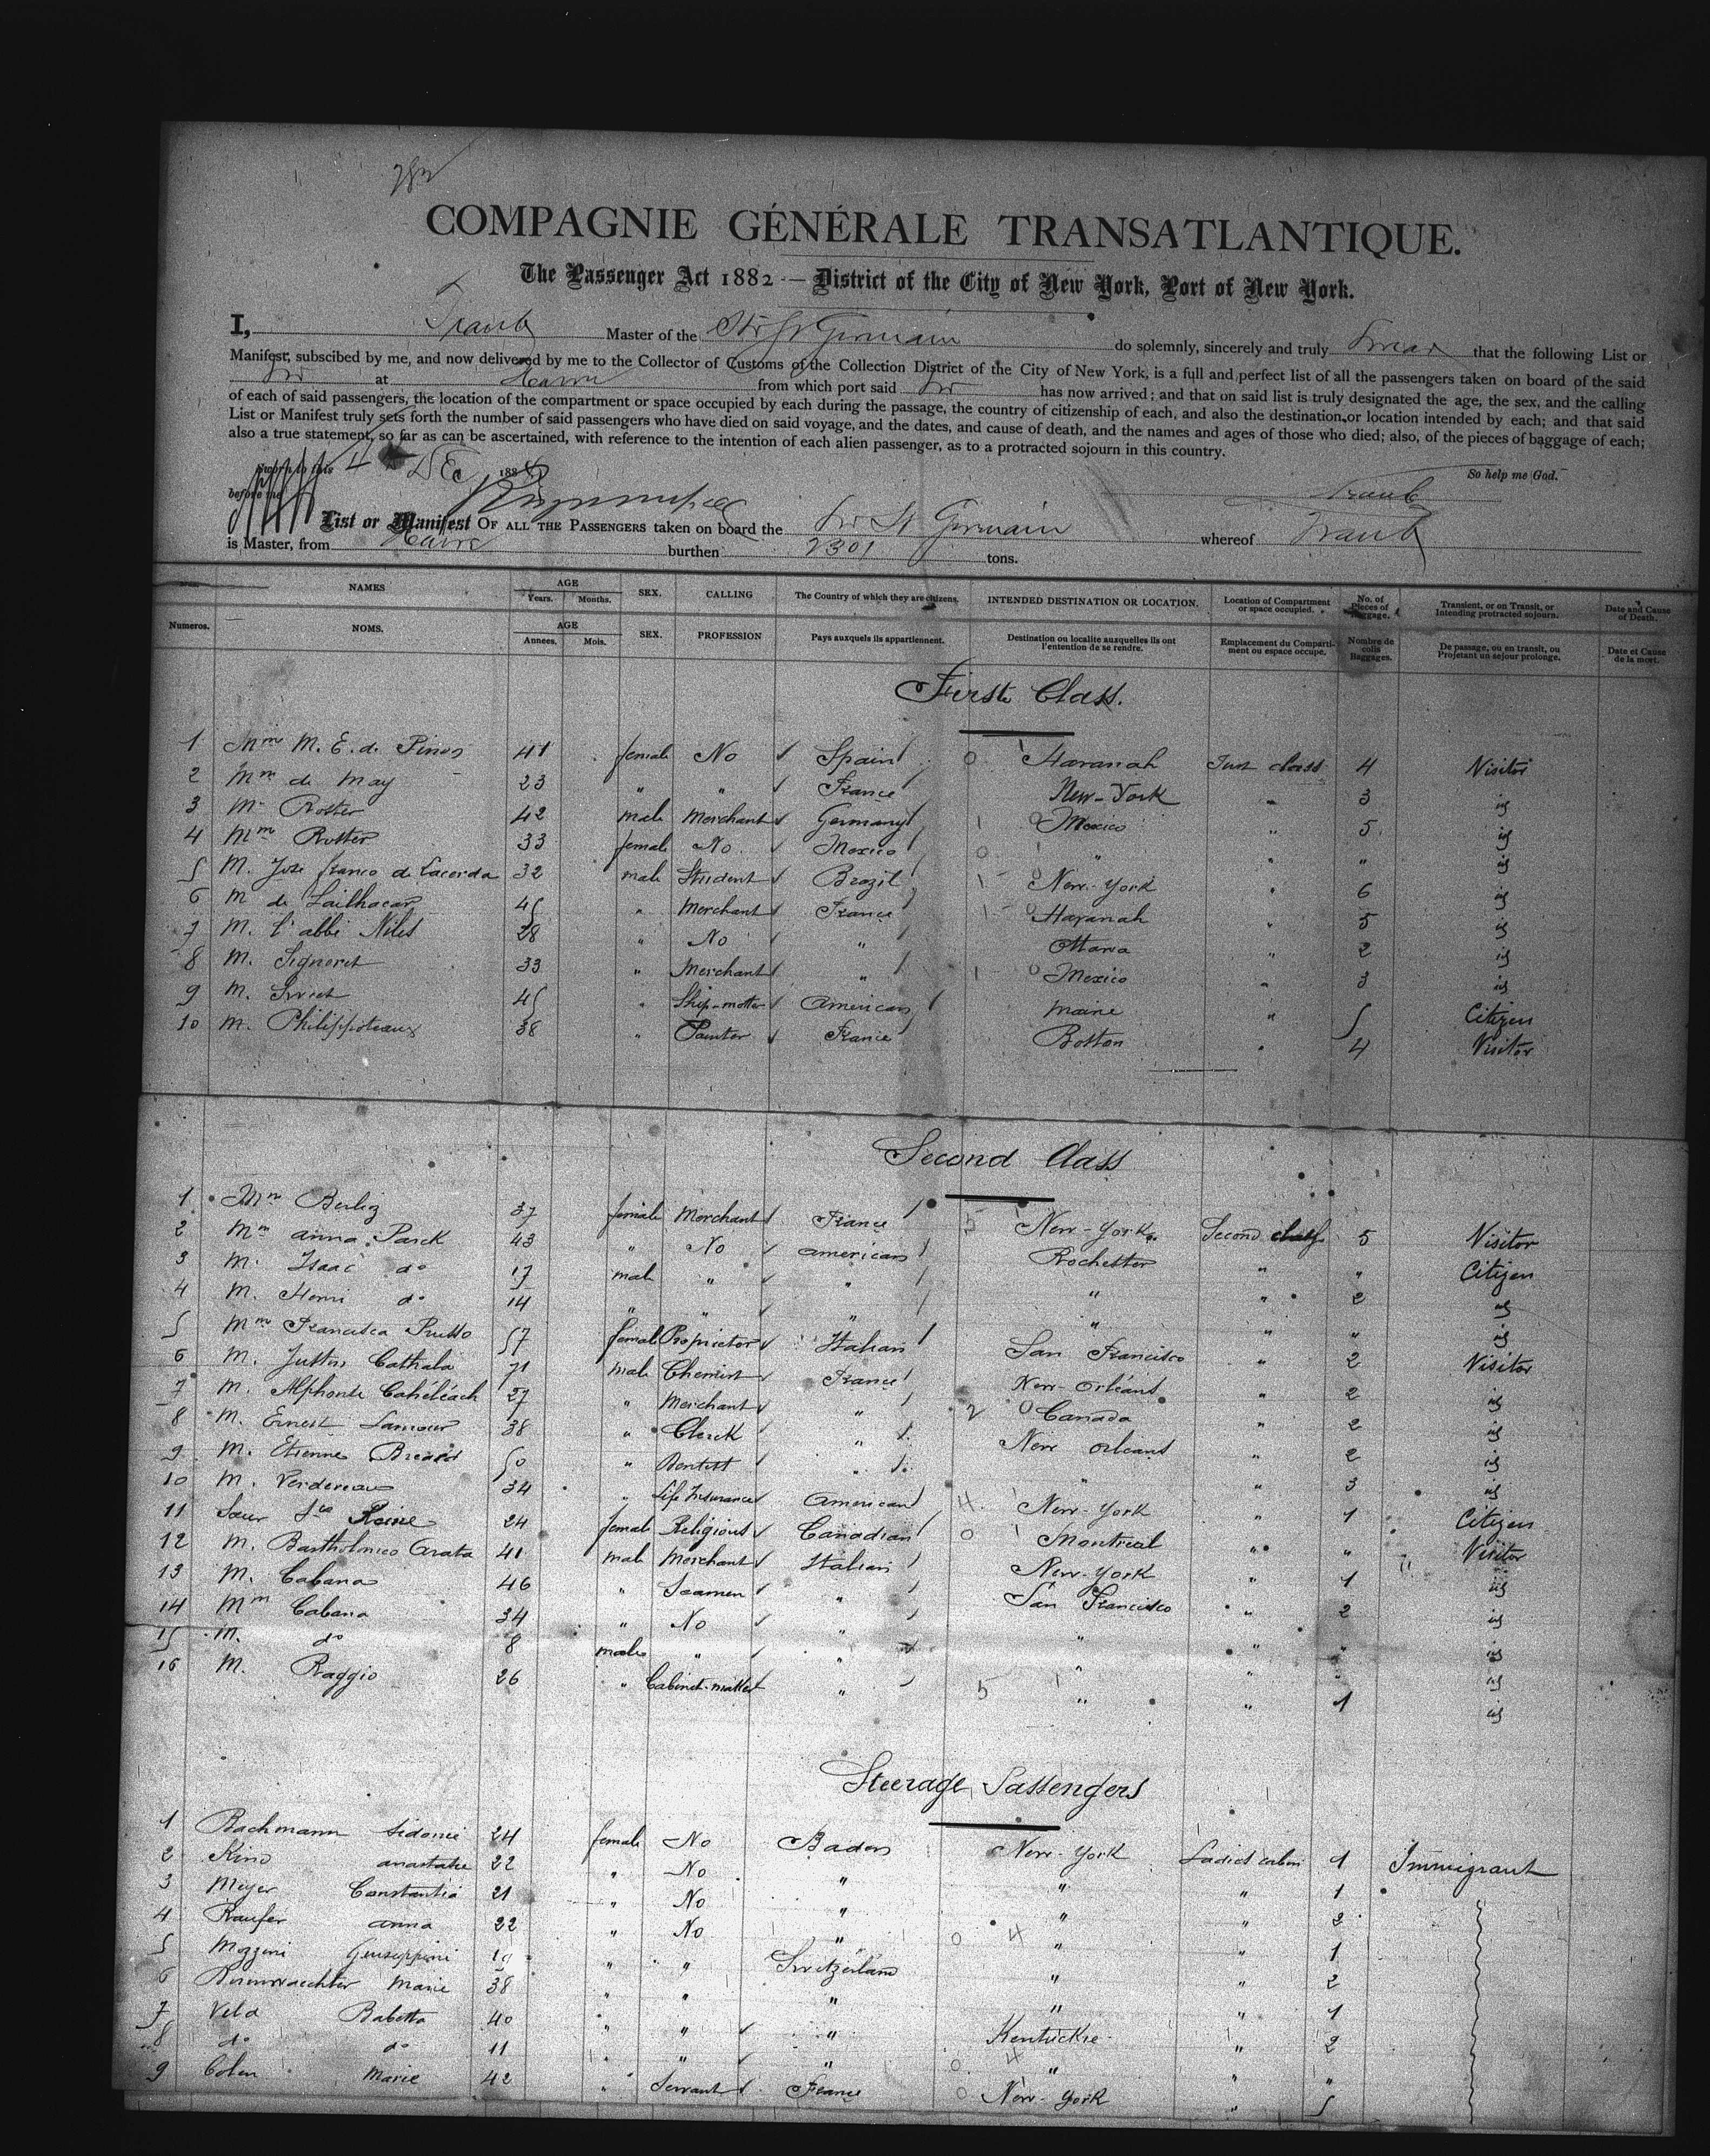 COMPAGNIE GÉNÉRALE TRANSATLANTIQUE.
The Passenger Act 1882 — District of the City of New York, Port of New York.
I, Traub Master of the Str St Germain do solemnly, sincerely and truly Swear that the following List or
Manifest, subscibed by me, and now delivered by me to the Collector of Customs of the Collection District of the City of New York, is a full and perfect list of all the passengers taken on board of the said
Str at Havre from which port said Str has now arrived; and that on said list is truly designated the age, the sex, and the calling
of each of said passengers, the location of the compartment or space occupied by each during the passage, the country of citizenship of each, and also the destination or location intended by each; and that said
List or Manifest truly sets forth the number of said passengers who have died on said voyage, and the dates, and cause of death, and the names and ages of those who died; also, of the pieces of baggage of each;
also a true statement, so far as can be ascertained, with reference to the intention of each alien passenger, as to a protracted sojourn in this country.
Sworn to this 4 Dec 188
So help me God.
before me Traub
List or Manifest OF ALL THE PASSENGERS taken on board the Str St Germain whereof Traub
is Master, from Havre burthen 2301 tons.
NAMES AGE Years. Months. SEX. CALLING The Country of which they are citizens. INTENDED DESTINATION OR LOCATION. Location of Compartment or space occupied. No. of Pieces of Baggage. Transient, or on Transit, or Intending protracted sojourn. Date and Cause of Death.
Numeros. NOMS. AGE Annees. Mois. SEX. PROFESSION Pays auxquels ils appartiennent. Destination ou localite auxquelles ils ont l'entention de se rendre. Emplacement du Compartiment ou espace occupe. Nombre de colis Baggages. De passage, ou en transit, ou Projetant un sejour prolonge. Date et Cause de la mort.
First Class.
1 Mme M. E. de Pinos 41 female No Spain 0 Havanah First class 4 Visitor
2 Mme de May 23 " " France New-York " 3 id
3 Mr Rotter 42 male Merchant Germany 1 0 Mexico " 5 id
4 Mme Rotter 33 female No Mexico 0 " " " id
5 M. Jose franco de Lacerda 32 male Student Brazil 1 0 New-York " 6 id
6 M de Lailhacar 45 " Merchant France 1 0 Havanah " 5 id
7 M. l'abbé Nilis 28 " No " Ottawa " 2 id
8 M. Signoret 33 " Merchant " 1 0 Mexico " 3 id
9 M. Sweet 45 " Ship-master American Maine " 5 Citizen
10 M. Philippoteaux 38 " Painter France Boston " 4 Visitor
Second Class
1 Mme Berlig 37 female Merchant France 5 New-York Second class 5 Visitor
2 Mme anna Parck 43 " No American Rochester " " Citizen
3 M. Isaac do 17 male " " " " 2 id
4 M. Henri do 14 " " " " " " id
5 Mme Francisca Russo 57 female Proprietor Italian San Francisco " 2 Visitor
6 M. Justin Cathala 71 male Chemist France New-Orléans " 2 id
7 M. Alphonse Cahéléach 27 " Merchant " 2 0 Canada " 2 id
8 M. Ernest Lamour 38 " Clerck " New orleans " 2 id
9 M. Etienne 50 " Dentist " " " 3 id
10 M. Verdereau 34 " Life Insurance American 4 New-York " 1 Citizen
11 Sœur Ste Reine 24 female Religious Canadian 0 1 Montreal " " Visitor
12 M. Bartholmico Arata 41 male Merchant Italian New-York " 1 id
13 M. Cabana 46 " Seamen " San Francisco " 2 id
14 Mme Cabana 34 " No " " " " id
15 M. do 8 male " " " " " id
16 M. Raggio 26 " Cabinet-maker " 5 1 " " 1 id
Steerage Passengers
1 Bachmann Sidonie 24 female No Baden New-York Ladies cabin 1 Immigrant
2 Kino anastasie 22 " No " " " 1
3 Meyer Constantia 21 " No " " " 2
4 Raufer anna 22 " No " 0 4 " " 1
5 Mozzini Geuseppini 19 " " Switzerland " " 2
6 Marie 38 " " " " " 1
7 Veld Babetta 40 " " " Kentuckie " 2
8 do do 11 " " " 0 4 " " "
9 Colen Marie 42 " Servant France 0 1 New-York " 5